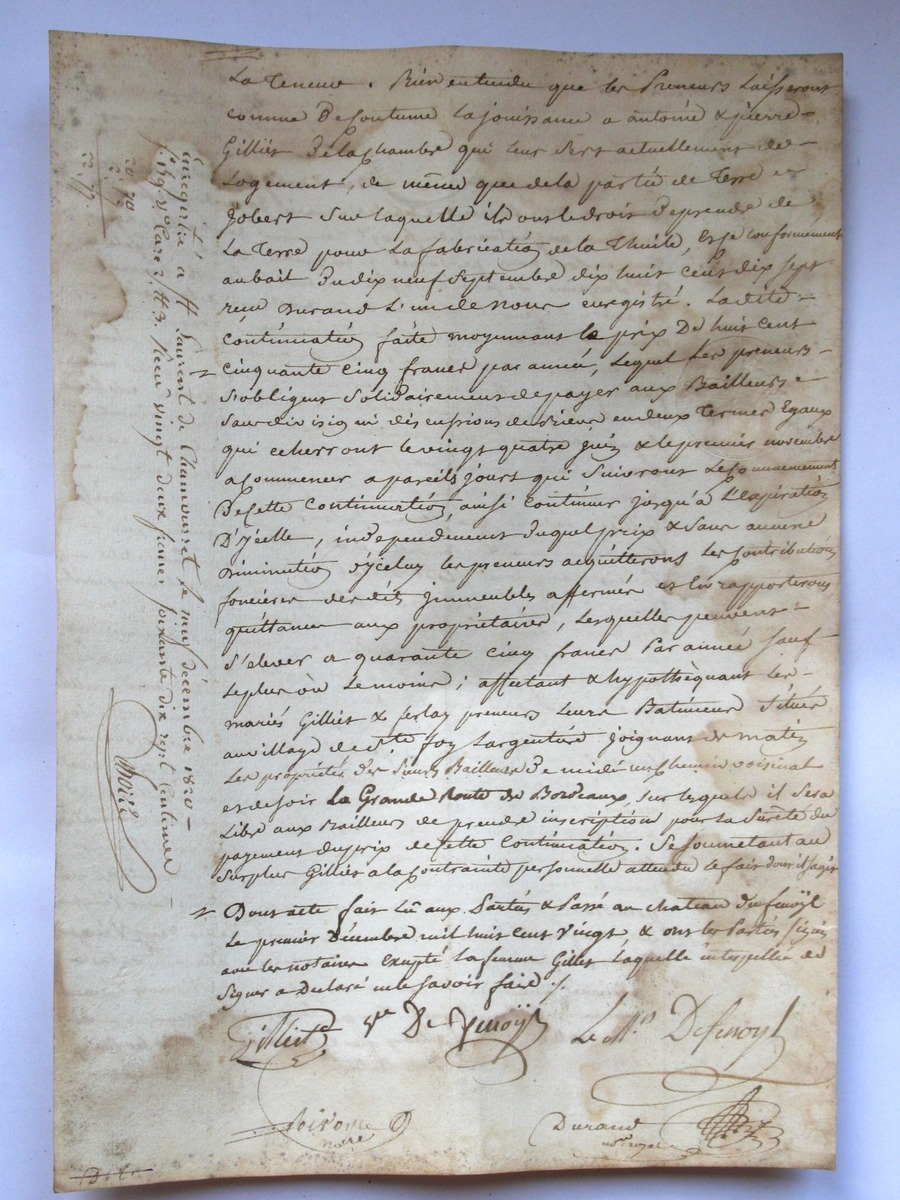 La Teneue. Bien entendu que les Preneurs Laisseront
comme De Coutume La jouissance a antoine & pierre
Gilliet De la Chambre qui leur sert actuellement de
Logement, de même que de la partie de Terre
jobert sur laquelle ils ont le droit De prendre de
La Terre pour La fabrication de la Thuile, Et ce conformement
au bail Du dix neuf Septembre dix huit cent dix Sept
reçu Durand L'un de nous enregistré. Ladite
Continuation faite moyennant le prix De huit cent
Cinquante Cinq francs par année, Lequel Les preneurs
S'obligent Solidairement de payer aux Bailleurs
Sans division ni discussions de biens en deux Termes Egaux
qui echerront le vingt quatre juin & le premier novembre
a Commencer a pareils jours qui Suivront Le Commencement
De Cette Continuation, ainsi Continuer jusqu'a L'expiration
D'ycelle, independamment Duquel prix & Sans aucune
Diminution d'yceluy les preneurs acquitterons Les Contributions
foncières desdits Immeubles affermés et En rapporterons
quittances aux propriétaires, Lesquelles peuvent
S'elever a quarante cinq francs Par année Sauf
Le plus ou Le moins; affectant & hypothèquant Les
mariés Gilliet & preneurs Leurs Batiments Situés
au village de Ste foy L'argentière joignant de matin
Les propriétés des Sieurs Bailleurs De midi un Chemin voisinal
et de soir La Grande Route de Bordeaux, sur lesquels il sera
Libre aux Bailleurs de prendre inscription pour La Sureté du
payement du prix de Cette Continuation. Se Soumetant au
Surplus Gilliet a la Contrainte personnelle attendu le fait dont il s'agit
Dont acte fait Lû aux Parties & Passé au chateau Du fenoÿl
Le premier Décembre mil huit Cent Vingt & ont les Parties Signés
avec les notaires Excepté La femme Gilliet Laquelle interpellée de
Signer a Déclaré ne le Savoir faire ./.
Gilliet Ve De fenoÿl Le Mis De fenoyl
notre
Durand
nore royal
Enregistré a St Laurent de Chamousset le neuf décembre 1820
f. 189. Vo Case 2. & 3. Reçu vingt deux francs soixante dix sept centimes
20. 70
2. 07
22. 77